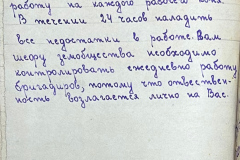 работу на каждого рабочего дня.
В течении 24 часов наладить
все недостатки в работе. Вам
шефу земобщества необходимо
контролировать ежедневно работу
бригадиров, потому что ответствен-
ность возлагается лично на Вас.